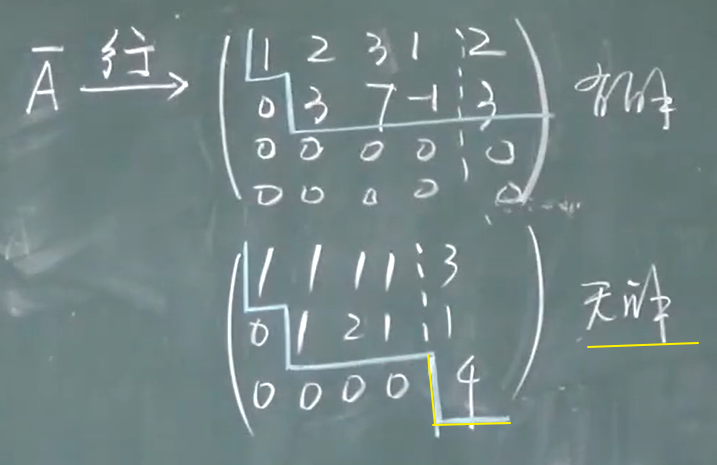 Ā 行 → ( 1 2 3 1 ¦ 2
0 3 7 -1 ¦ 3
0 0 0 0 ¦ 0
0 0 0 0 0 ) 有解
( 1 1 1 1 ¦ 3
0 1 2 1 ¦ 1
0 0 0 0 4 ) 无解